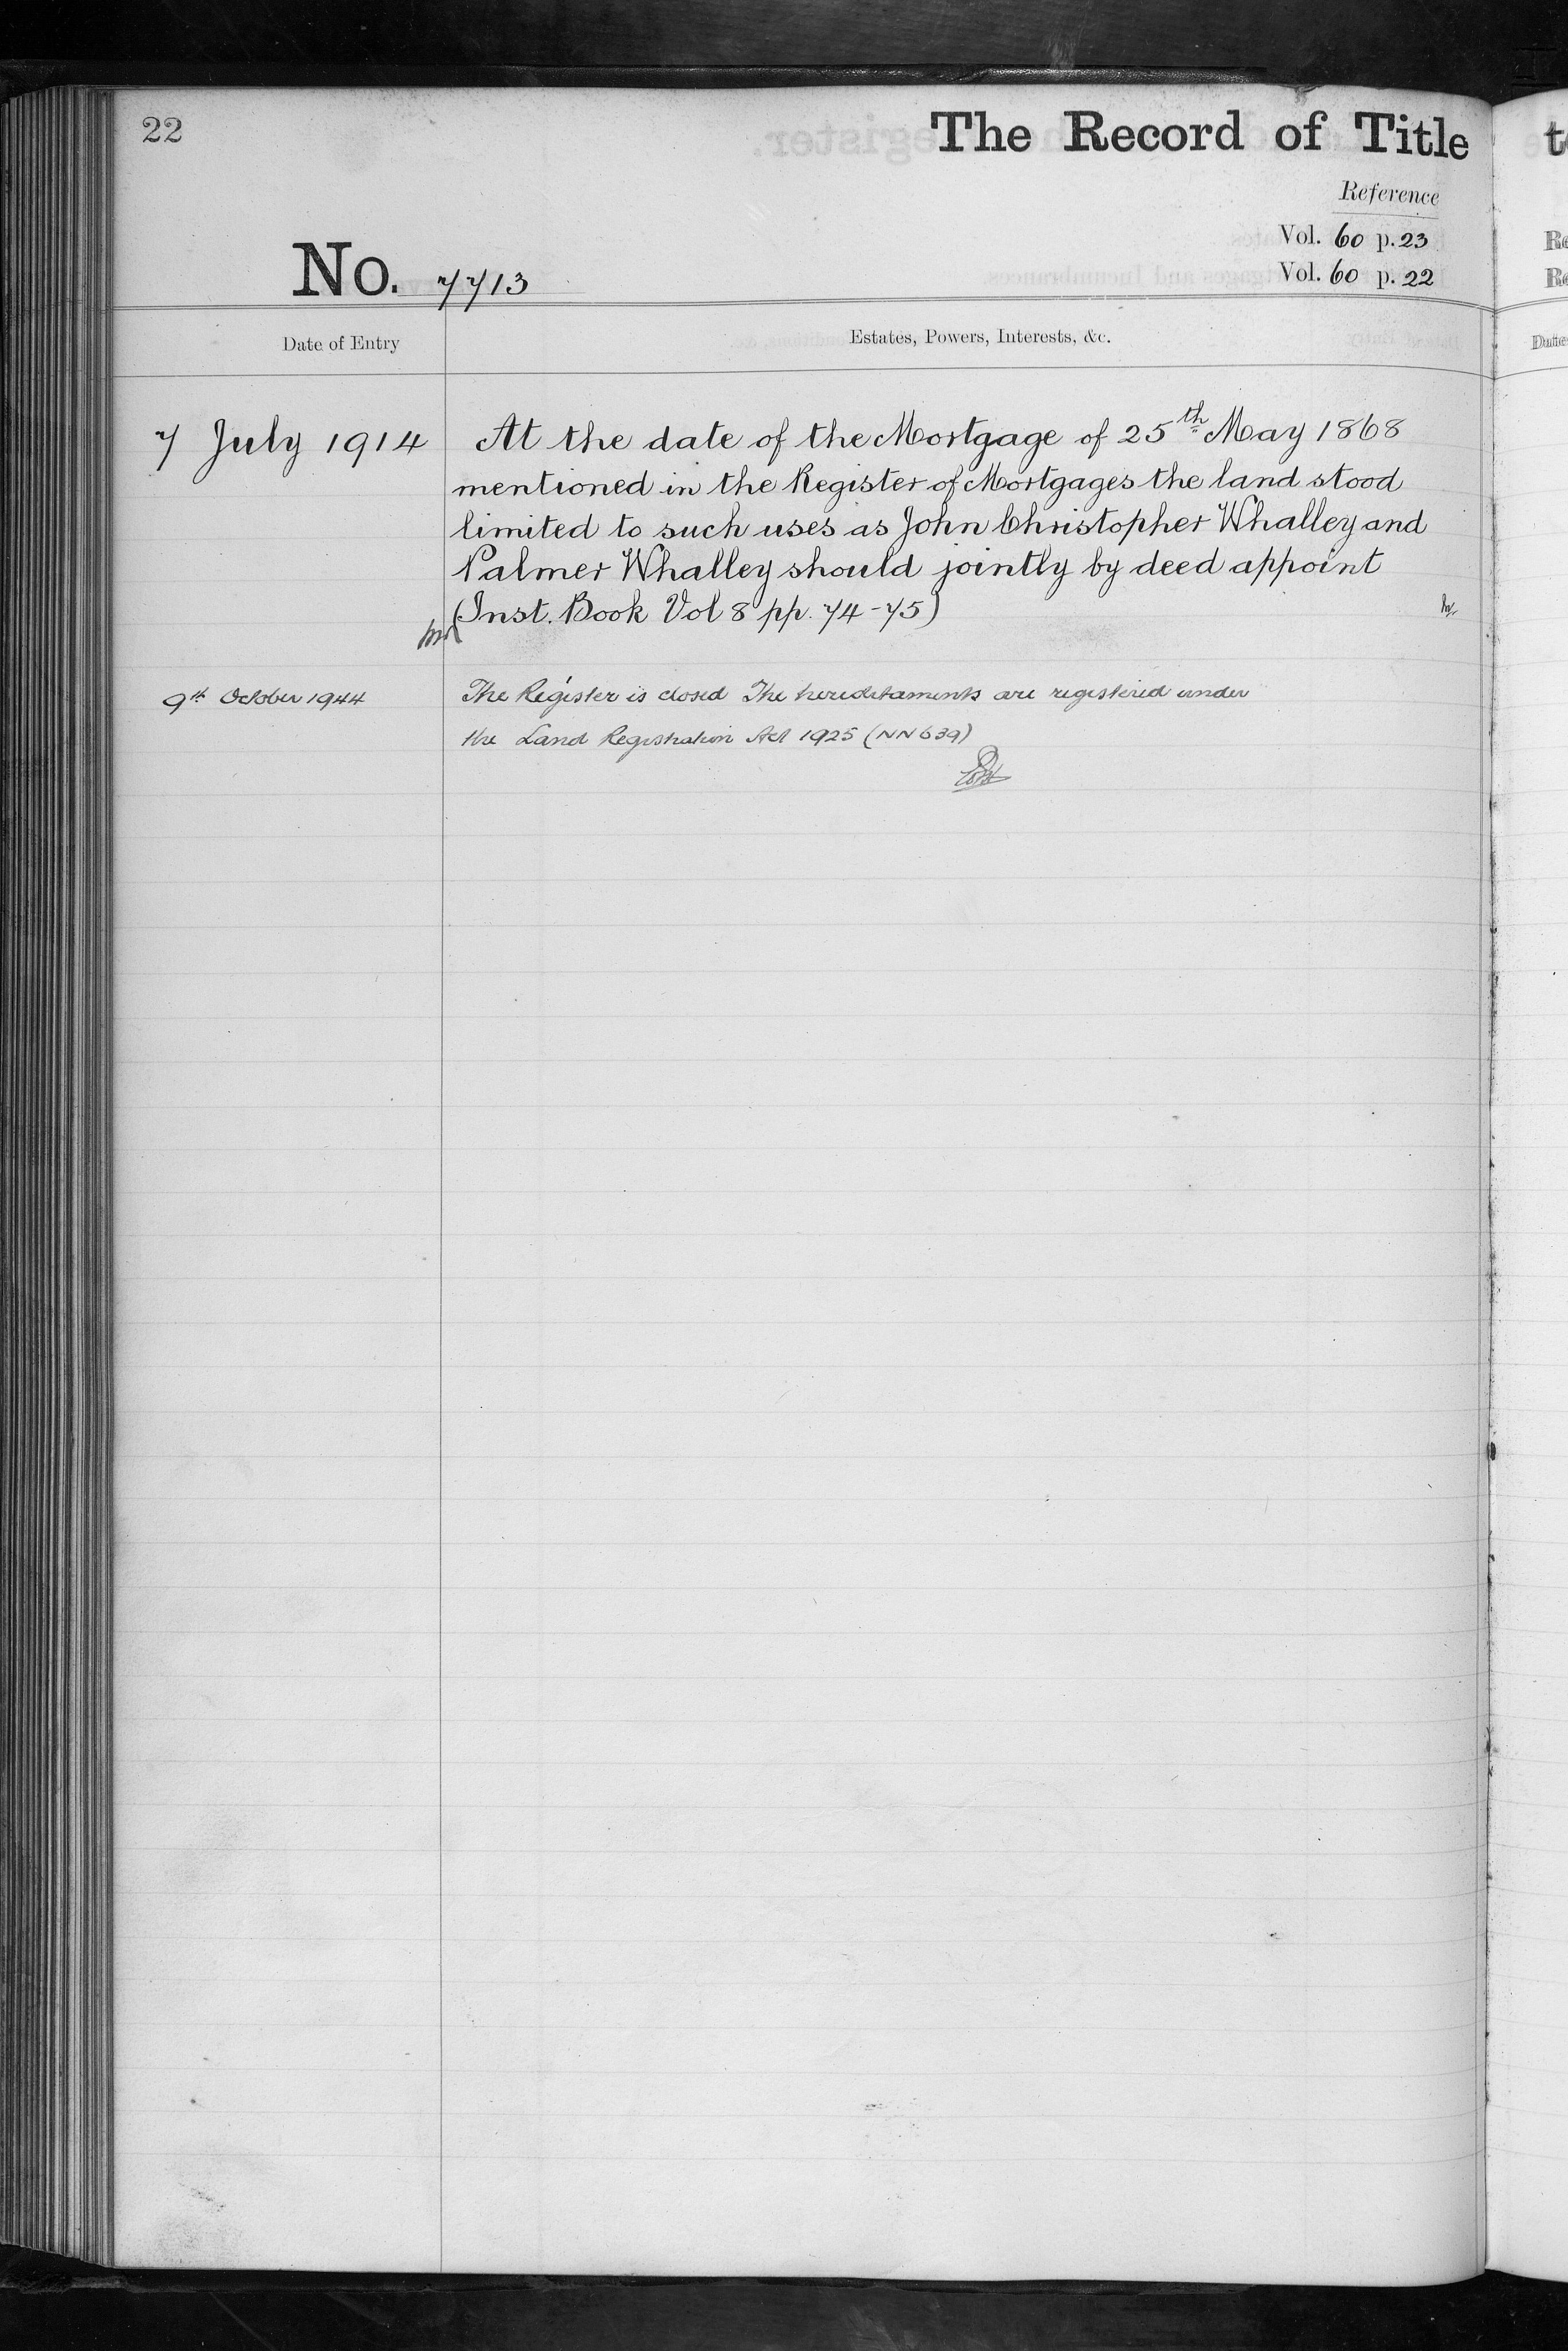 22
The Record of Title
Reference
Vol. 60 p. 23
No. 7713
Vol. 60 p. 22
Date of Entry
Estates, Powers, Interests, &c.
7 July 1914
At the date of the Mortgage of 25th May 1868
mentioned in the Register of Mortgages the land stood
limited to such uses as John Christopher Whalley and
Palmer Whalley should jointly by deed appoint
(Inst. Book Vol 8 pp. 74-75)
9th October 1944
The Register is closed The hereditaments are registered under
the Land Registration Act 1925 (NN639)